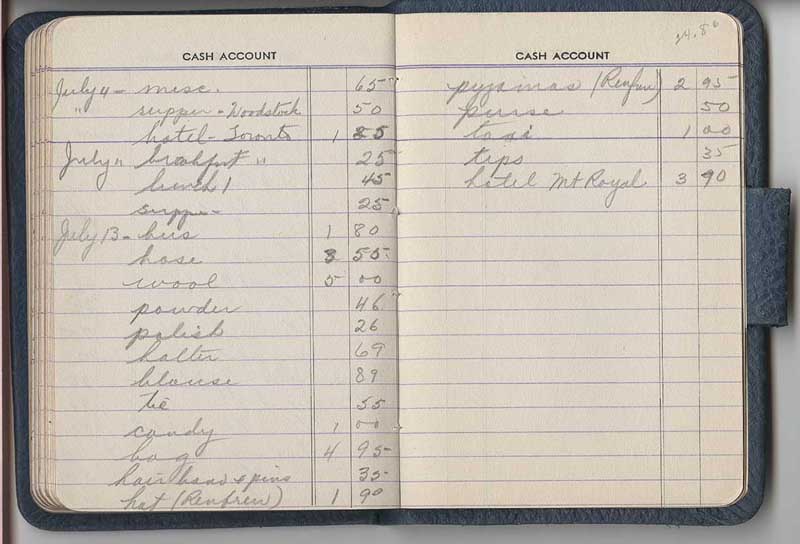 CASH ACCOUNT
July 4 - misc. 65
" supper - Woodstock 50
hotel - Toronto 1 85
July " breakfast " 25
lunch 1 45
supper 25
July 13 - bus 1 80
hose 3 55
wool 5 00
powder 46
polish 26
halter 69
blouse 89
tie 55
candy 1 00
bag 4 95
hair band & pins 35
hat (Renfrew) 1 90
24.80
CASH ACCOUNT
pyjamas (Renfrew) 2 95
purse 50
taxi 1 00
tips 35
hotel Mt Royal 3 90